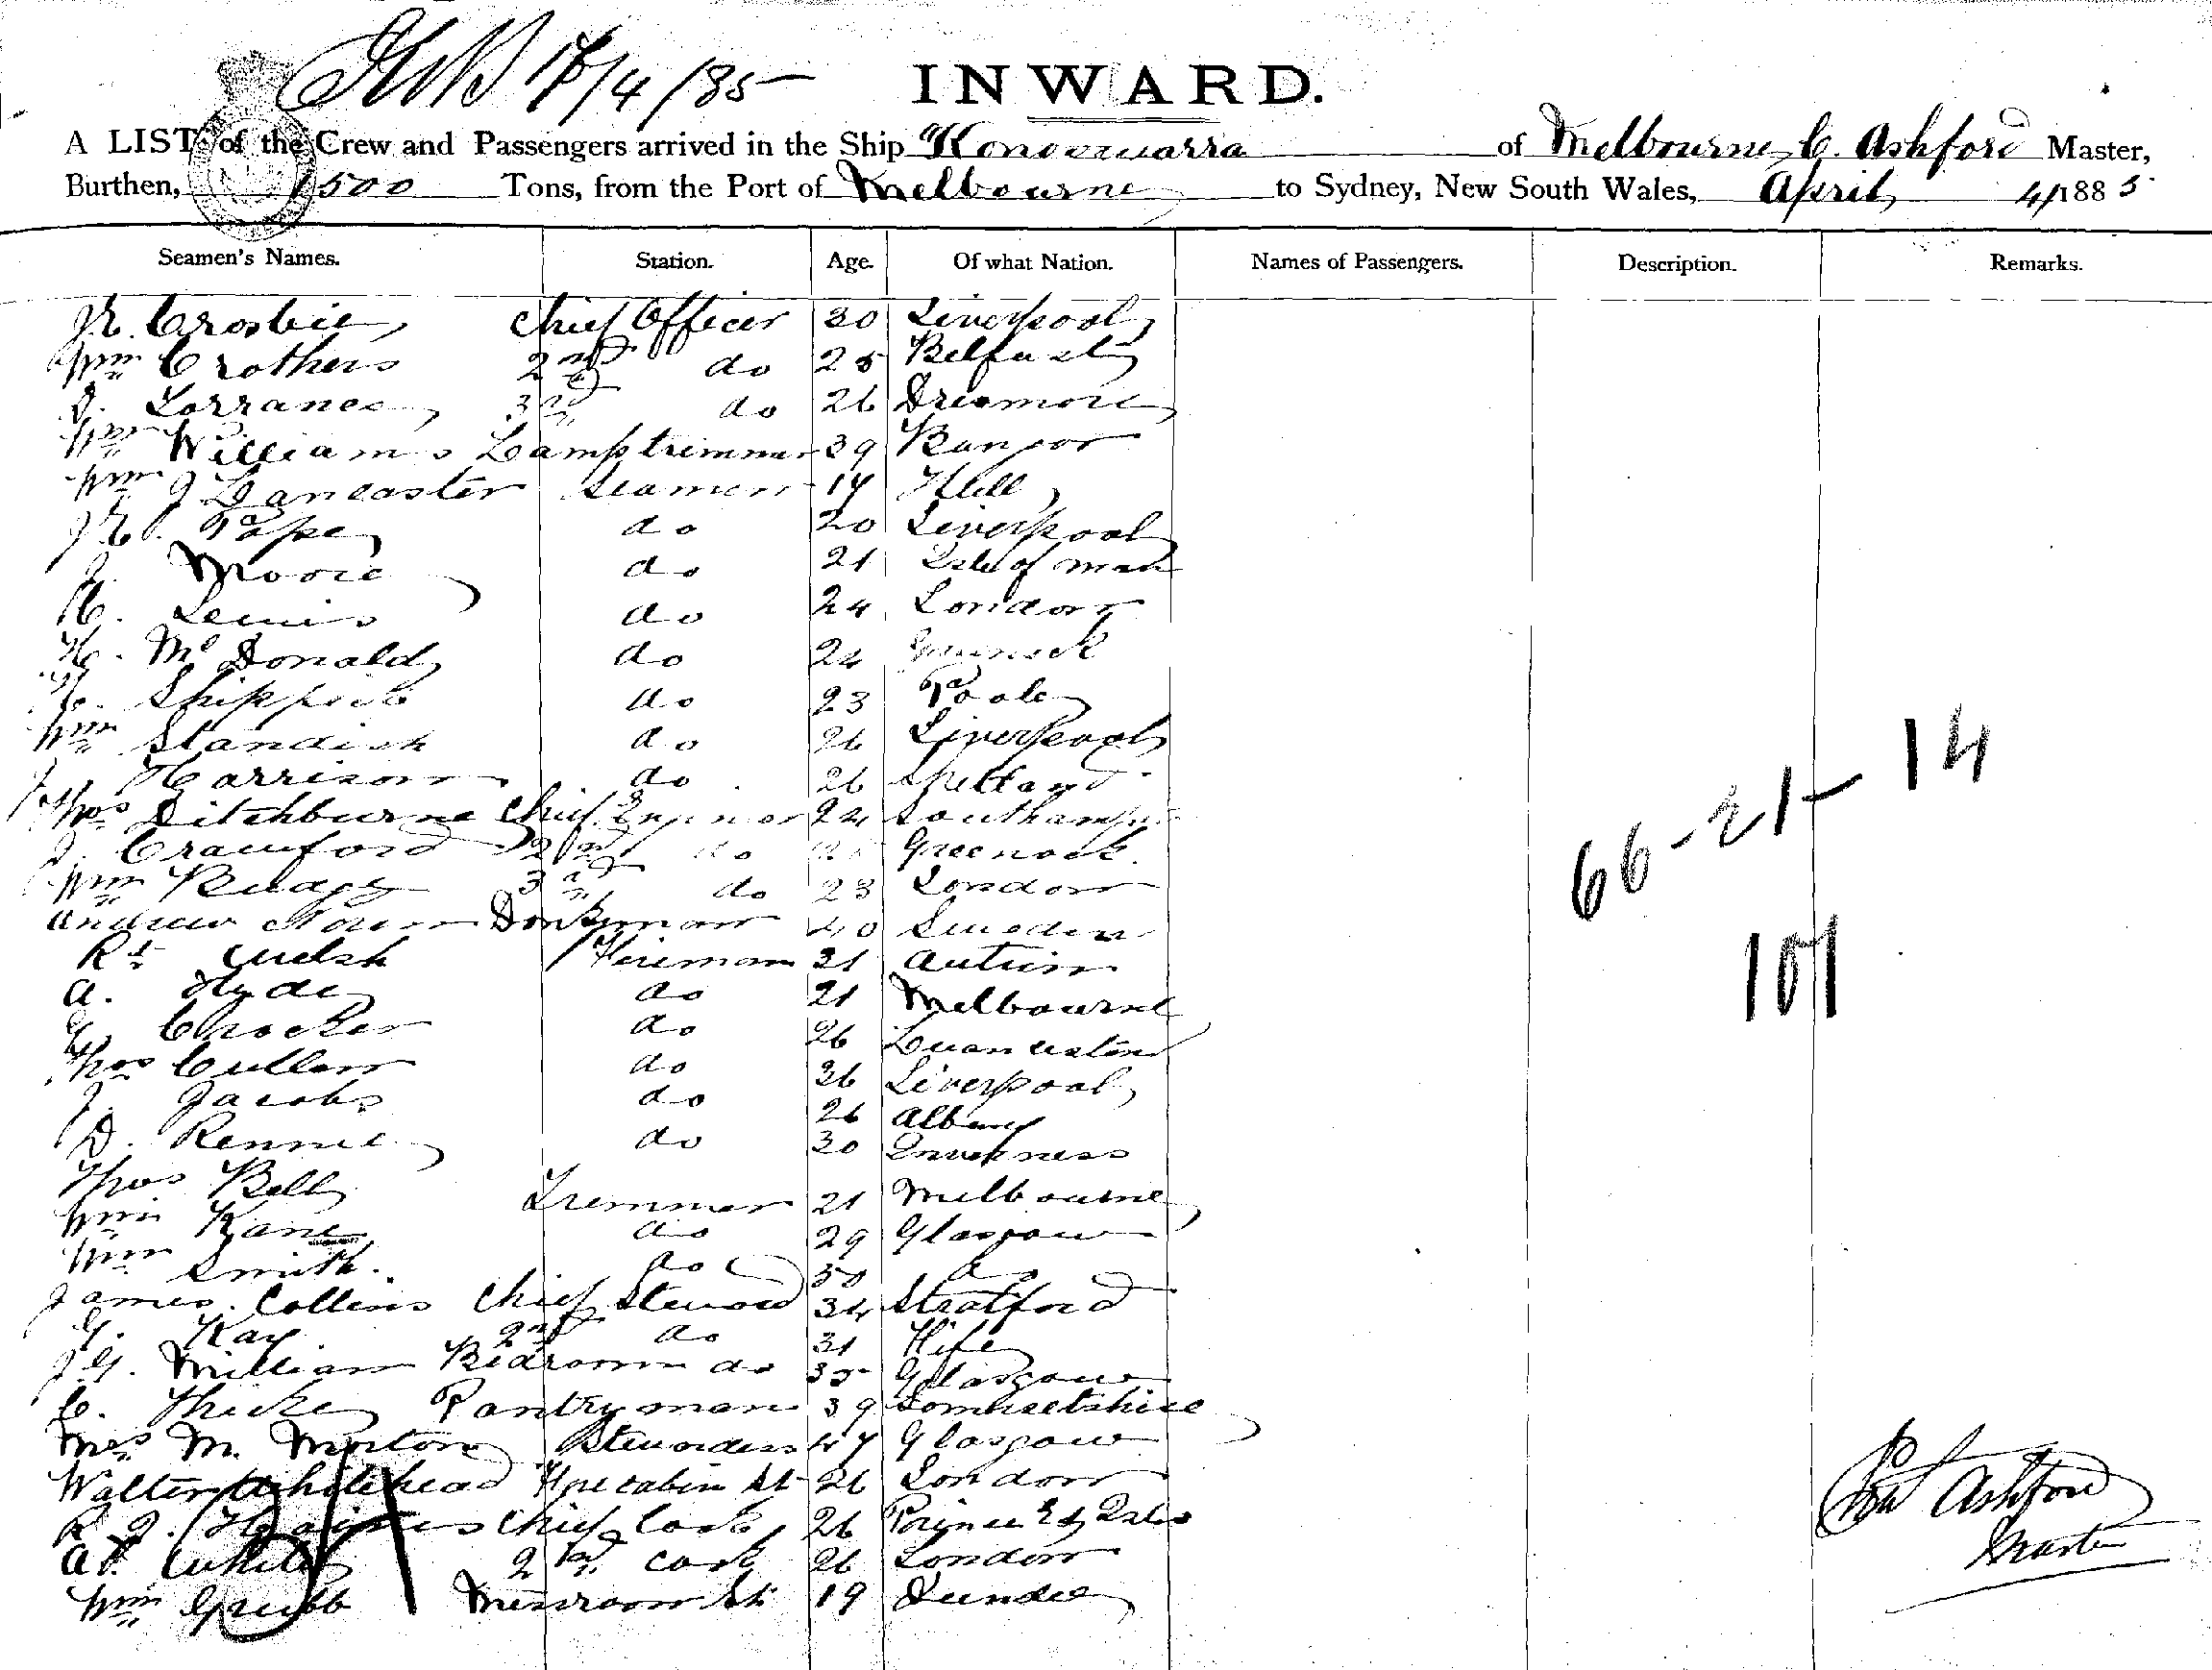 17/4/85
INWARD.
A LIST of the Crew and Passengers arrived in the Ship Konoowarra of Melbourne, C. Ashford Master,
Burthen, 1500 Tons, from the Port of Melbourne to Sydney, New South Wales, April 4/1885
Seamen's Names. Station. Age. Of what Nation. Names of Passengers. Description. Remarks.
Crosbie Chief Officer 30 Liverpool
Wm Crothers 2nd do 25 Belfast
Lorrance 3rd do 26
Wm Williams Lamptrimmer 39 Bangor
Wm J Lancaster Seamen 17 Hull
Pope do 20 Liverpool
J. Moore do 21 Isle of Man
H. Lewis do 24 London
H. McDonald do 24 Greenock
do 23 Poole
Wm Standish do 26 Liverpool
J Harrison do 26 Shetland
Thos Ditchburne Chief Engineer 24
J. Crawford 2nd do Greenock
Wm Rudge 3rd do 23 London
Andrew Donkeyman 40 Sweden
Rt Welsh Fireman 31 Antrim
A. Hyde do 21 Melbourne
G. Chocker do 26
Thos Cullen do 36 Liverpool
J. Jacobs do 26 Albury
D. Rennie do 30 Inverness
Thos Bell Tremmer 21 Melbourne
Wm Kane do 29 Glasgow
Wm Smith do 30 do
James Collins Chief Steward 34 Stratford
G. Kay 2nd do 31 Fife
J G. Millian Bedroom do 35 Glasgow
C. Thicke Pantryman 39
Mrs M. Morton Stewardess 47 Glasgow
Walter Whitehead Fore cabin St 26 London
Chief Cook 26
White 2nd Cook 26 London
Wm Grubb Messroom St 19 Dundee
66 - 21 - 14
101
Ashford
Master